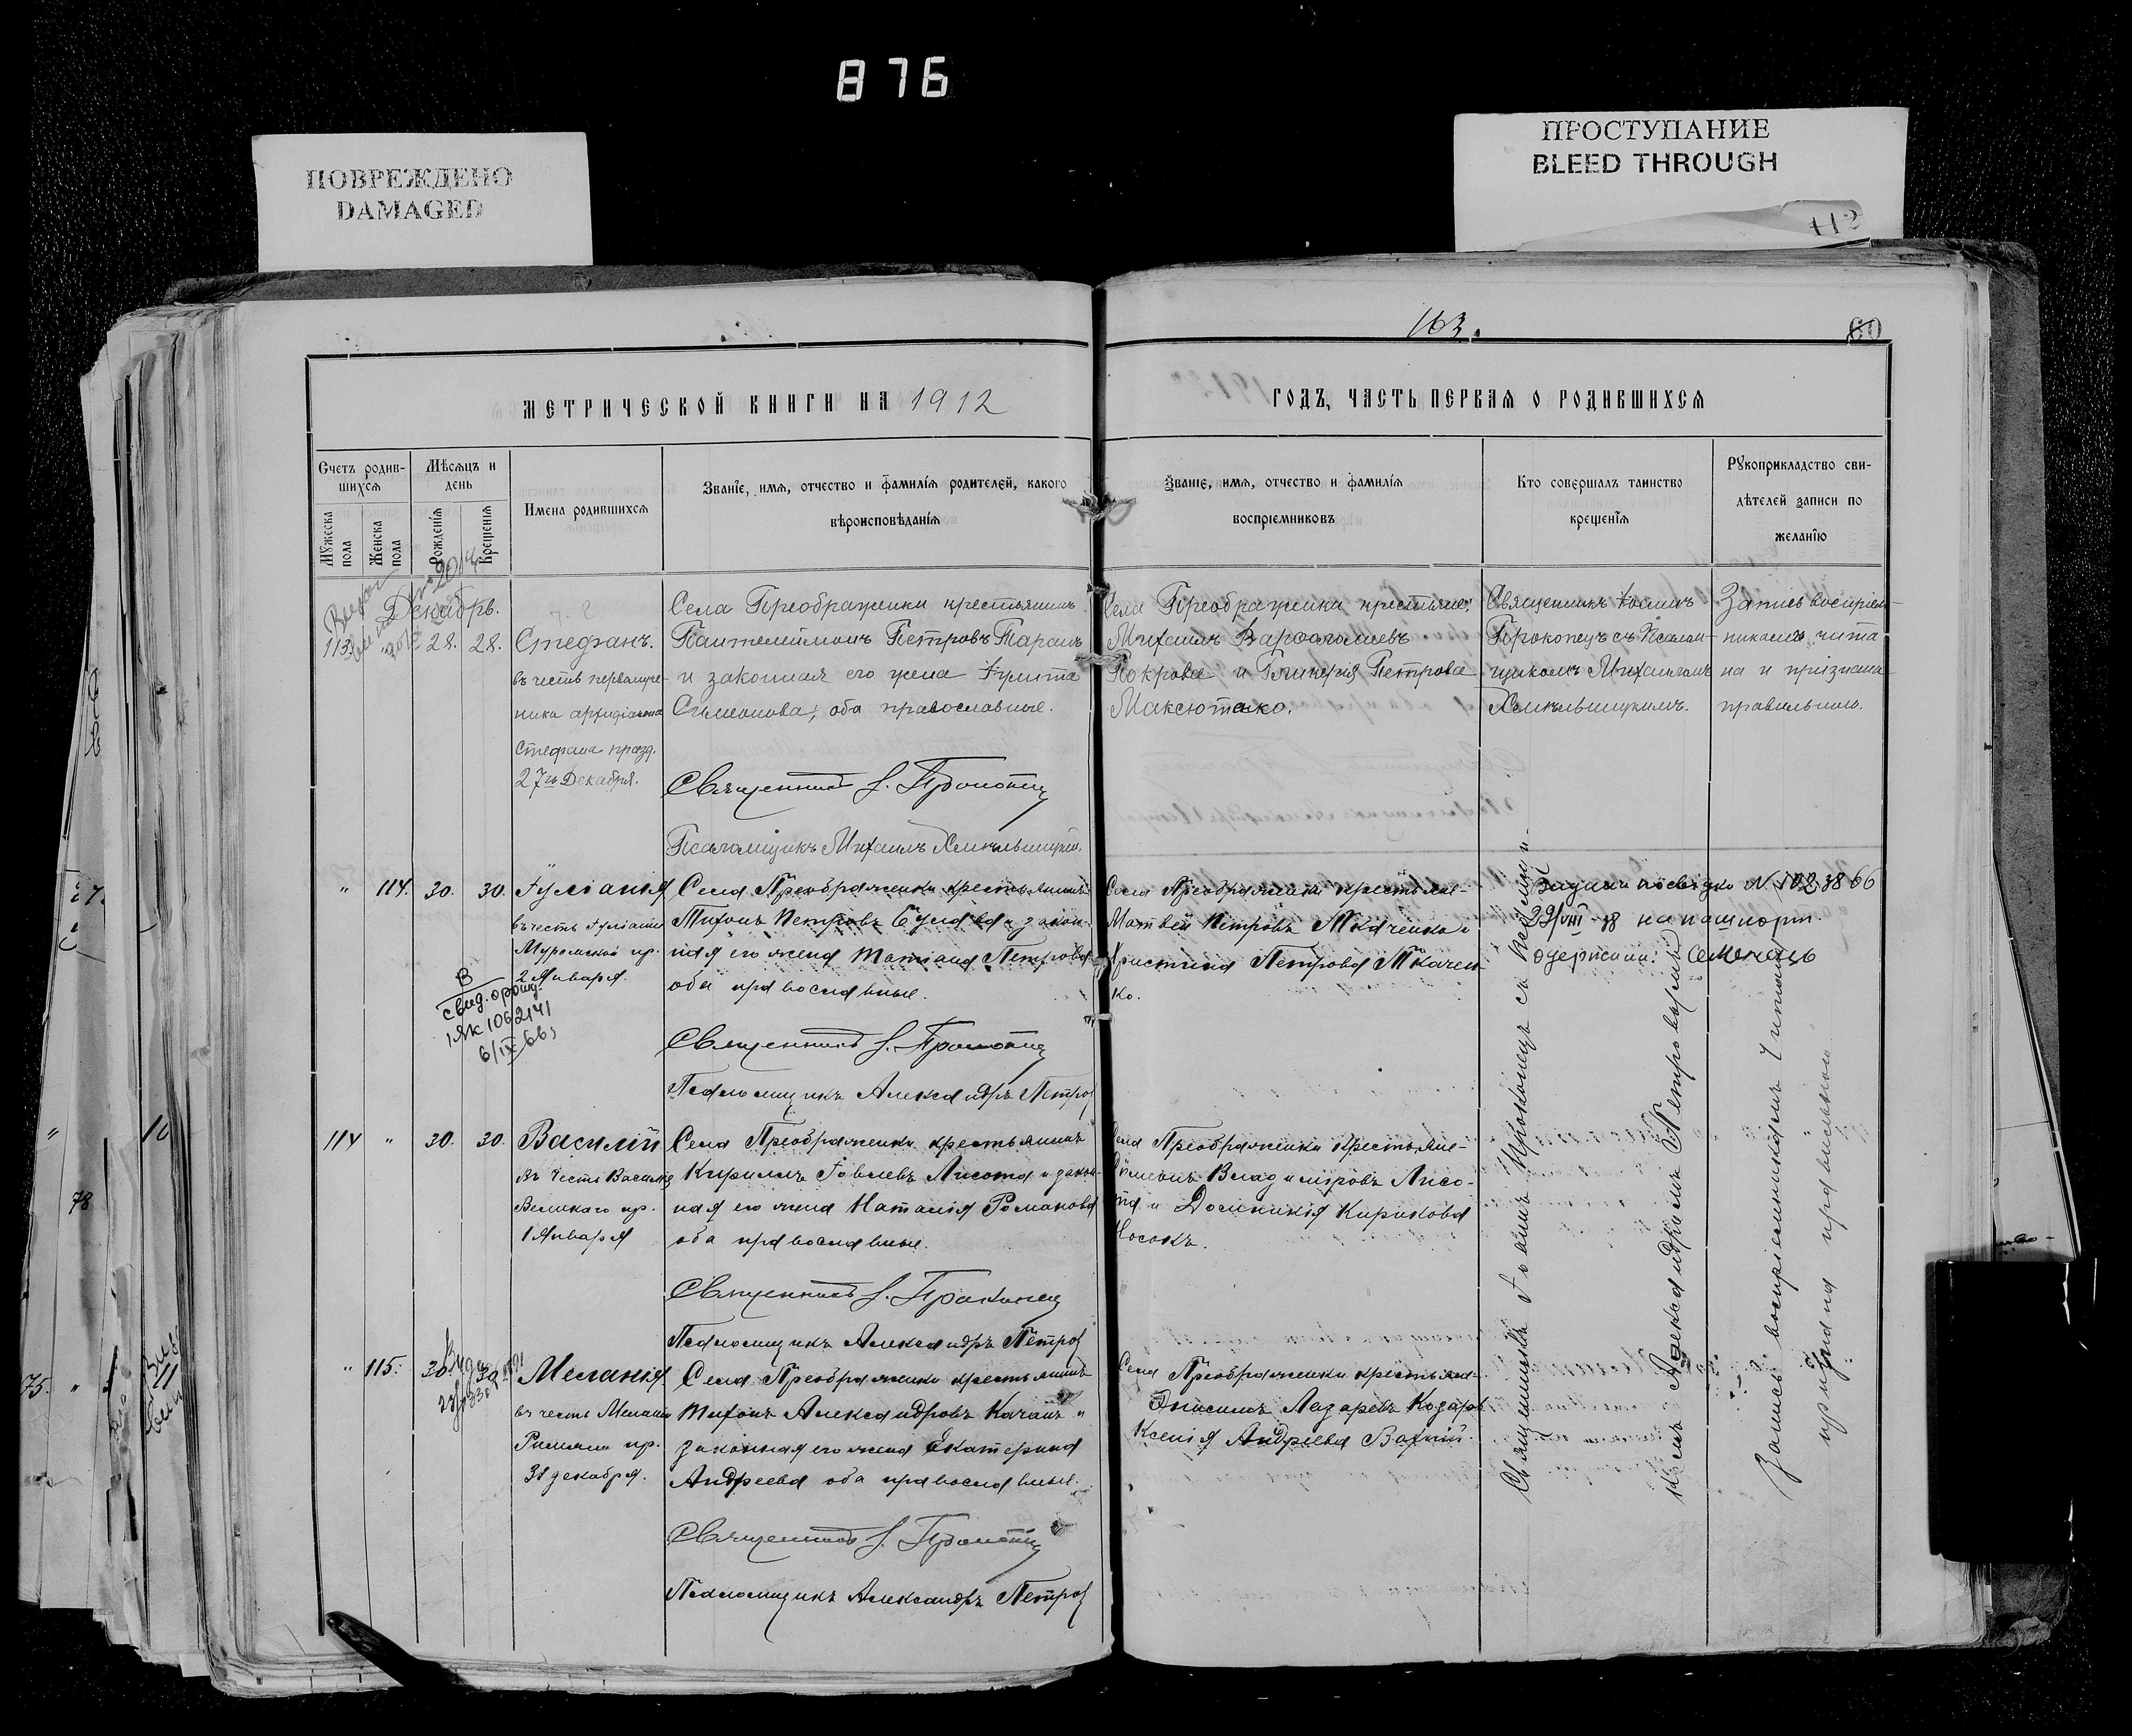 876
ПОВРЕЖДЕНО
DAMAGED
ПРОСТУПАНИЕ
BLEED THROUGH
112
163.
60
МЕТРИЧЕСКОЙ КНИГИ НА 1912
ГОДЪ, ЧАСТЬ ПЕРВАЯ О РОДИВШИХСЯ
Счетъ родив-
шихся
Мужеска пола
Женска пола
Мѣсяцъ и
день
Рожденія
Крещенія
Имена родившихся
Званіе, имя, отчество и фамилія родителей, какого
вѣроисповѣданія
Званіе, имя, отчество и фамилія
воспріемниковъ
Кто совершалъ таинство
крещенія
Рукоприкладство сви-
дѣтелей записи по
желанію
Декабрь.
113. " 28. 28.
Стефанъ.
въ честь первомуче-
ника архидіакона
Стефана празд.
27го Декабря.
Села Преображенки крестьянинъ
Пантелеймонъ Петровъ Таранъ
и законная его жена Іулита
Симеонова, оба православные.
Священникъ І. Прокопецъ
Псаломщикъ Михаилъ Хмѣльницкій.
Села Преображенки крестьяне:
Михаилъ Варѳоломіевъ
Покрова и Гликерія Петрова
Максютенко.
Священникъ Іоаннъ
Прокопецъ съ Псалом-
щикомъ Михаиломъ
Хмѣльницкимъ.
Запись воспріем-
никамъ чита
на и признана
правильною.
" 114. 30. 30.
Іуліанія
въ честь Іуліаніи
Муромской пр.
2 Января.
В
свид. о рожд.
1ЯК 1062141
6/IX 66
Села Преображенки крестьянинъ
Тихонъ Петровъ Булава и закон-
ная его жена Татіана Петрова
оба православные.
Священникъ І. Прокопецъ
Псаломщикъ Александръ Петров
Села Преображенки крестьяне-
Матвей Петровъ Ткаченко и
Христина Петрова Ткачен-
ко.
Видали посвідку N 102 38 66
29/VIII-38 на пашпорт.
одержали:
114 " 30. 30.
Василій
Въ честь Василія
Великаго пр.
1 Января
Села Преображенки крестьянинъ
Кириллъ Іовлевъ Лисота и закон-
ная его жена Наталія Романова
оба православные.
Священникъ І. Прокопецъ
Псаломщикъ Александръ Петров
Села Преображенки крестьяне-
Симеонъ Владиміровъ Лисо-
та и Домникія Кирикова
Носокъ.
" 115. 30. 30.
Меланія
въ честь Меланіи
Римлян. пр.
31 декабря.
Села Преображенки крестьянинъ
Тихонъ Александровъ Качанъ и
законная его жена Екатерина
Андреева оба православные.
Священникъ І. Прокопецъ
Псаломщикъ Александръ Петров
Села Преображенки крестьяне-
Онисимъ Лазаревъ Козарь
Ксенія Андреева Вахній
Священникъ Іоаннъ Прокопецъ съ Псаломщи-
комъ Александромъ Петровымъ
Запись воспріемникамъ читана
признана правильною
78
75. "